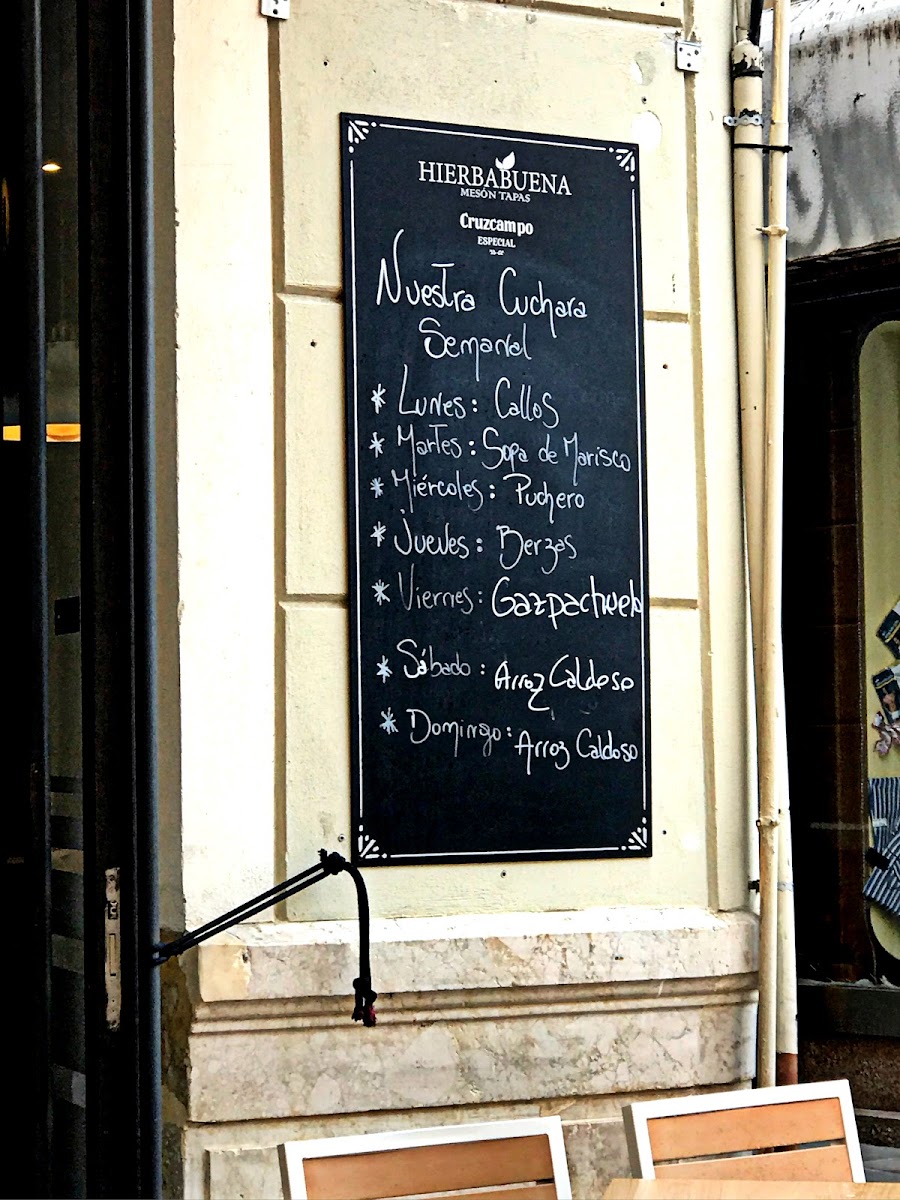 HIERBABUENA
MESÓN TAPAS
Cruzcampo
ESPECIAL
Nuestra Cuchara
Semanal
* Lunes: Callos
* Martes: Sopa de Marisco
* Miércoles: Puchero
* Jueves: Berzas
* Viernes: Gazpachuelo
* Sábado: Arroz Caldoso
* Domingo: Arroz Caldoso